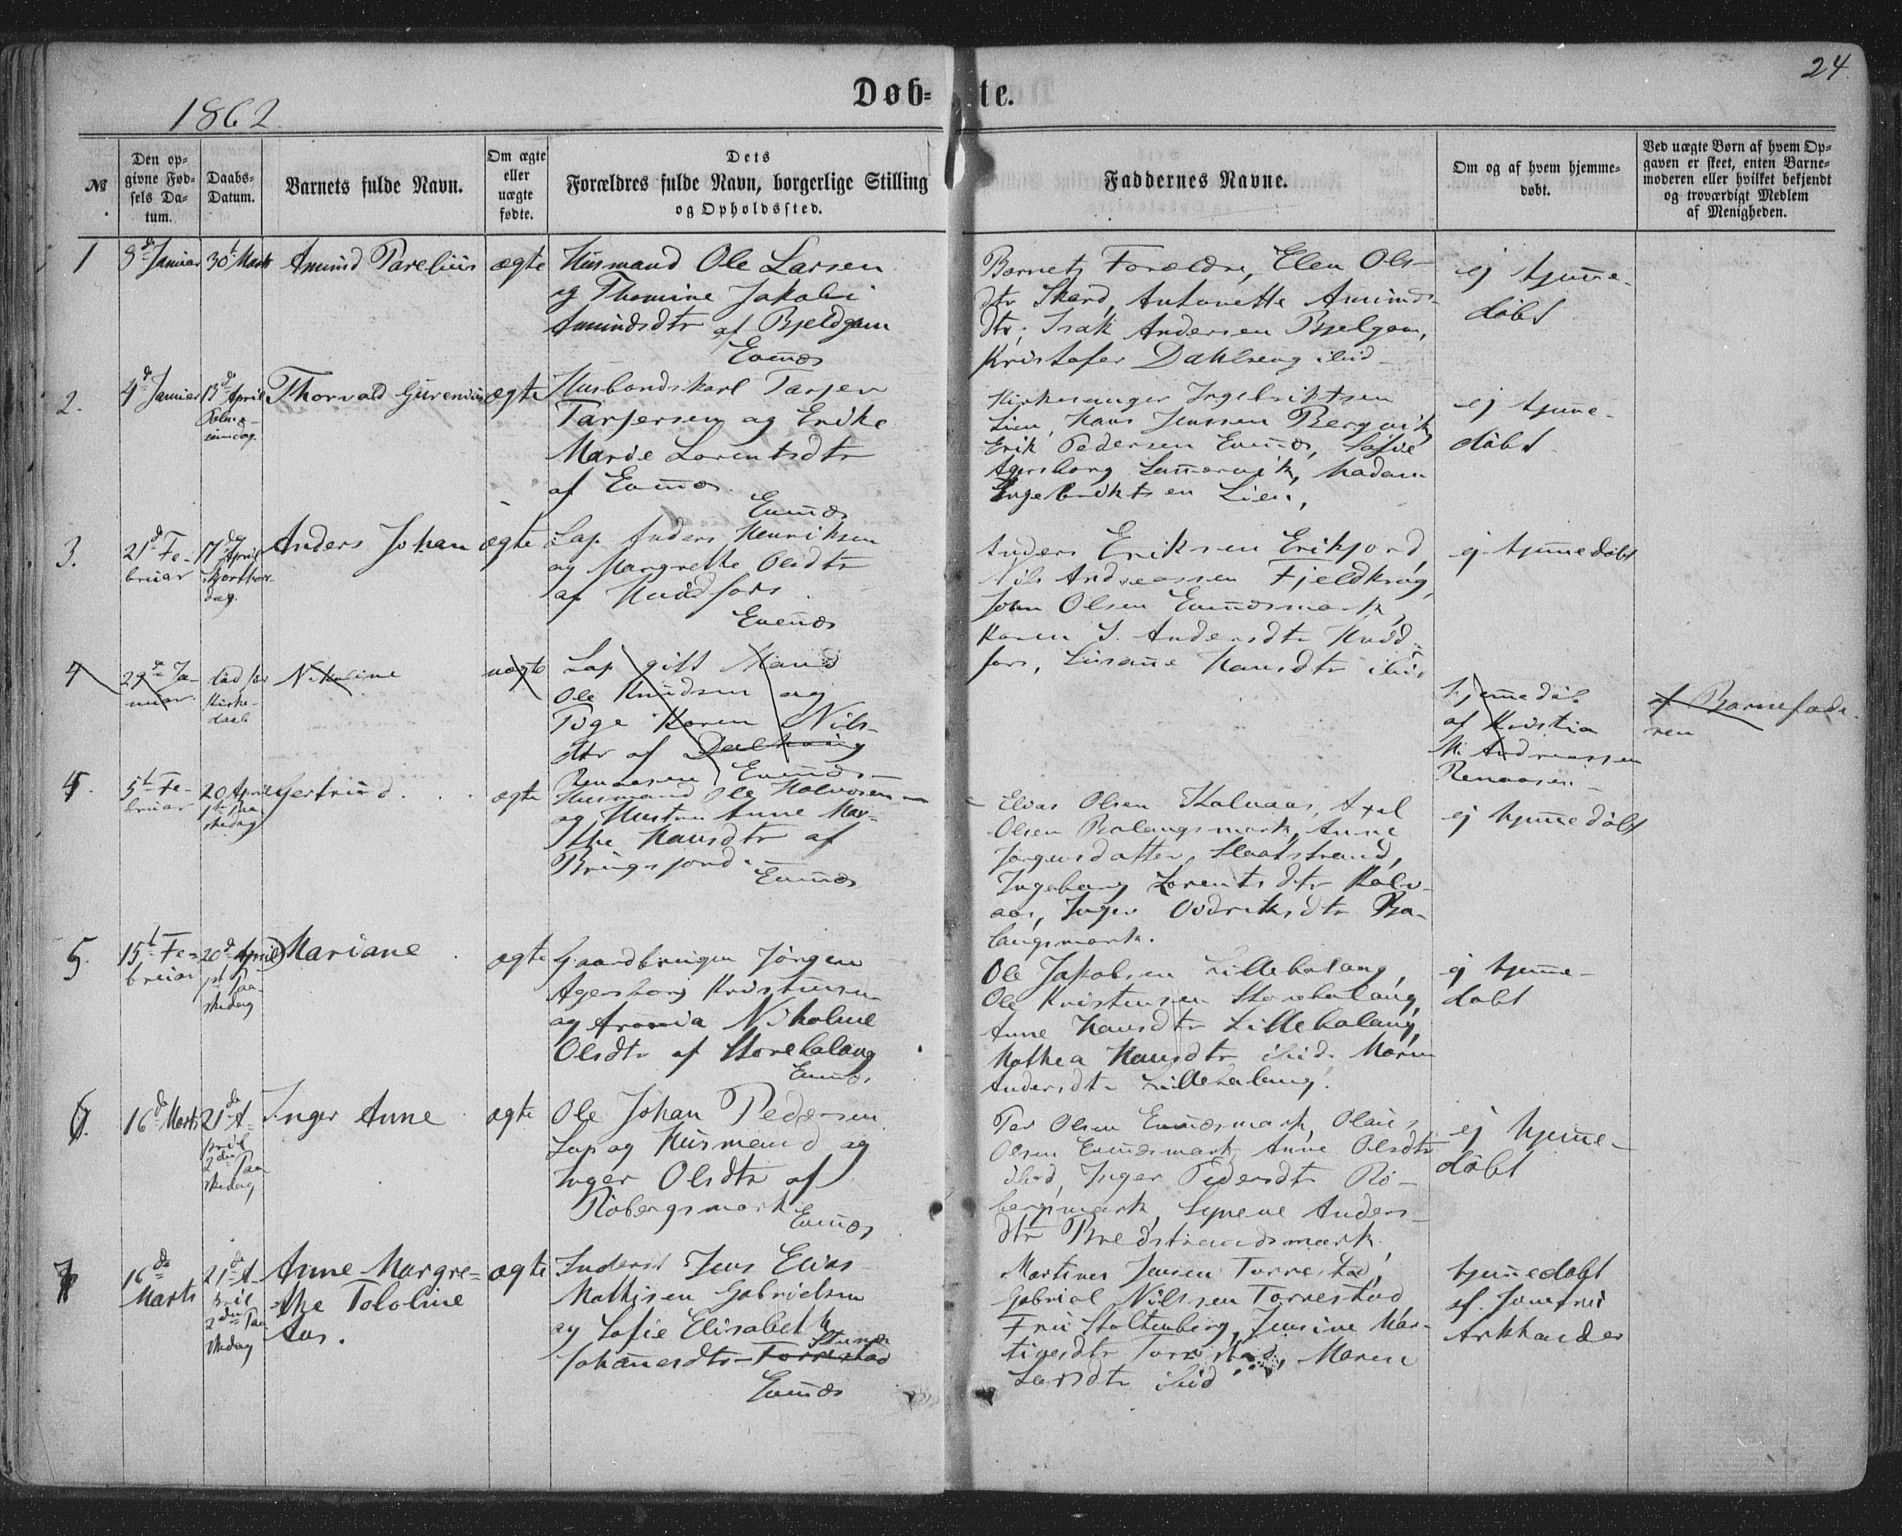 24
1862
Døb=te.
№
Den op=
givne Fød=
sels Da=
tum.
Daabs=
Datum.
Barnets fulde Navn.
Om ægte
eller
uægte
fødte.
Dets
Forældres fulde Navn, borgerlige Stilling
og Opholdssted.
Faddernes Navne.
Om og af hvem hjemme=
døbt.
Ved uægte Børn af hvem Op=
gaven er skeet, enten Barne=
moderen eller hvilket bekjendt
og troværdigt Medlem
af Menigheden.
1
Januar
30 Marts
Amund Parelius
ægte
Husmand Ole Larsen
og Thomine Jakobi
Amundsdtr af Bjeldgam
Evenæs
Barnets Forældre, Elen Ols-
dtr Skard, Antonette Amunds-
dtr, Isak Andersen Bjelgam,
Kristofer Dahlseng ibid
ej hjemme-
døbt
2.
4de Januar
13de April
Palme-
sundag.
Thorvald
ægte
Husbondskarl Tarjer
Tarjersen og Erikke
Marie Lorentsdtr
af Evenæs.
Evenæs
Kirkesanger Ingebriktsen
Lien, Hans Jenssen Bergvik
Erik Pedersen Evenæs, Sofie
Agersborg, Madam
Ingebriktsen Lien,
ej hjemme-
døbt
3.
21de Fe-
bruar
17de April
Skjærthors
dag.
Anders Johan
ægte
Lap Anders Henriksen
og Margrethe Olsdtr
af
Evenæs
Anders Eriksen Erikjord,
Nils Andreassen Fjeldkrog,
John Olsen Evenæsmark,
Karen J. Andersdtr
fors, Susanne Hansdtr ibid
ej hjemmedøbt
4
29de Ja-
nuar
død før
Kirke-
daab
Nikoline
uægte
Lap gift Mand
Ole Knudsen og
Pige Karen Nils-
dtr af
Renaasen Evenæs
Hjemmedøb
af Kristia
N. Andreassen
Renaasen
af Barnefade-
ren
4.
5te Fe-
bruar
20 April
1ste Paa
skedag
Gertrud
ægte
Husmand Ole Halvorsen
og Hustru Anne Mar-
the Hansdtr af
Bringsjord.
Evenæs
Elias Olsen Kalvaas, Axel
Olsen Balangsmark, Anne
Jørgensdatter,
Ingeborg Lorentsdtr Kalv-
aas, Inger Ba-
langsmark.
ej hjemmedøbt
5.
15te Fe-
bruar
20de April
1ste Paa
skedag
Mariane
ægte
Gaardbruger Jørgen
Agersborg Kristensen
og Nikoline
Olsdtr af Storebalang
Evenæs
Ole Jakobsen Lillebalang,
Ole Kristensen Storebalang,
Anne Hansdtr Lillebalang,
Mathea Hansdtr ibid. Maren
Andersdtr Lillebalang.
ej hjemme-
døbt
6.
16de Marts
21de A-
pril
2den Paa
skedag
Inger Anne
ægte
Ole Johan Pedersen
Lap og Husmand og
Inger Olsdtr af
Robergsmark
Evenæs
Per Olsen Evenæsmark, Olaus
Olsen Evenæsmark, Anne Olsdtr
ibid, Inger Pedersdtr Ro-
bergsmark, Anders-
dtr Bredstrandsmark.
ej hjemme-
døbt
7
16de
Marts
21de A-
pril
2den Paa
skedag
Anne Margre-
the Tololine
Aas.
ægte
Inderst Jens Elias
Mathisen Gabrielsen
og Sofie Elisabeth
Johannesdtr Torrestad
Evenæs
Martines Jensen Torrestad,
Gabriel Nilssen Torrestad
Fru Stoltenberg, Jensine Mar-
Torrestad, Maren
Larsdtr ibid
hjemmedøbt
af Jomfru